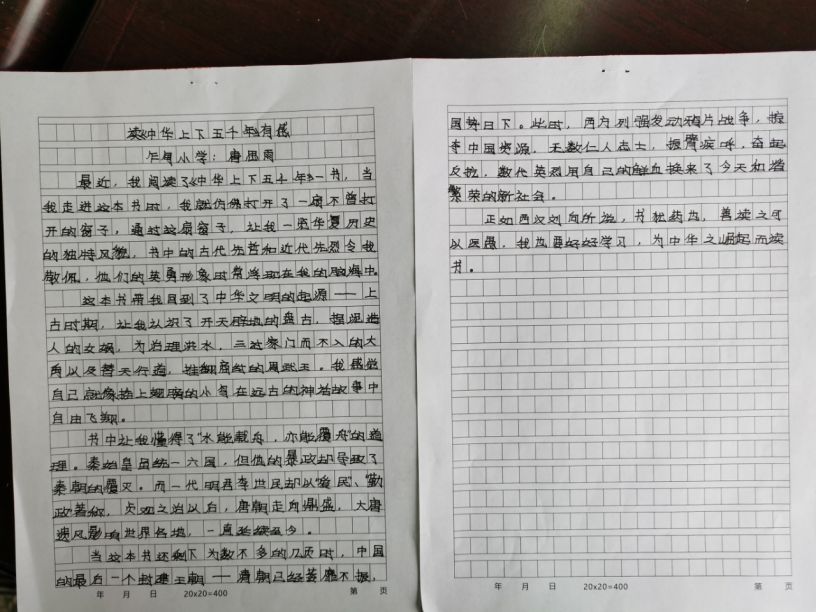 读《中华上下五千年》有感
乍甸小学：唐思雨
最近，我阅读了《中华上下五千年》一书，当
我走进这本书时，我就仿佛打开了一扇不曾打
开的窗子，通过这扇窗子，让我一览华夏历史
的独特风貌，书中的古代先哲和近代先烈令我
敬佩，他们的英勇形象时常浮现在我的脑海中。
这本书带我回到了中华文明的起源——上
古时期，让我认识了开天辟地的盘古，捏泥造
人的女娲，为治理洪水，三过家门而不入的大
禹以及替天行道，推翻商纣的周武王。我感觉
自己就像插上翅膀的小鸟在远古的神话故事中
自由飞翔。
书中让我懂得了“水能载舟，亦能覆舟”的道
理。秦始皇虽统一六国，但他的暴政却导致了
秦朝的覆灭。而一代明君李世民却以“爱民”、“勤
政”著称，贞观之治以后，唐朝走向鼎盛，大唐
遗风影响世界各地，一直延续至今。
当这本书还剩下为数不多的几页时，中国
的最后一个封建王朝——清朝已经萎靡不振，
年 月 日 20x20=400 第 页
国势日下。此时，西方列强发动鸦片战争，掠
夺中国资源，无数仁人志士，振臂疾呼，奋起
反抗，数代英烈用自己的鲜血换来了今天和谐
繁荣的新社会。
正如西汉刘向所说，书犹药也，善读之可
以医愚，我也要好好学习，为中华之崛起而读
书。
年 月 日 20x20=400 第 页